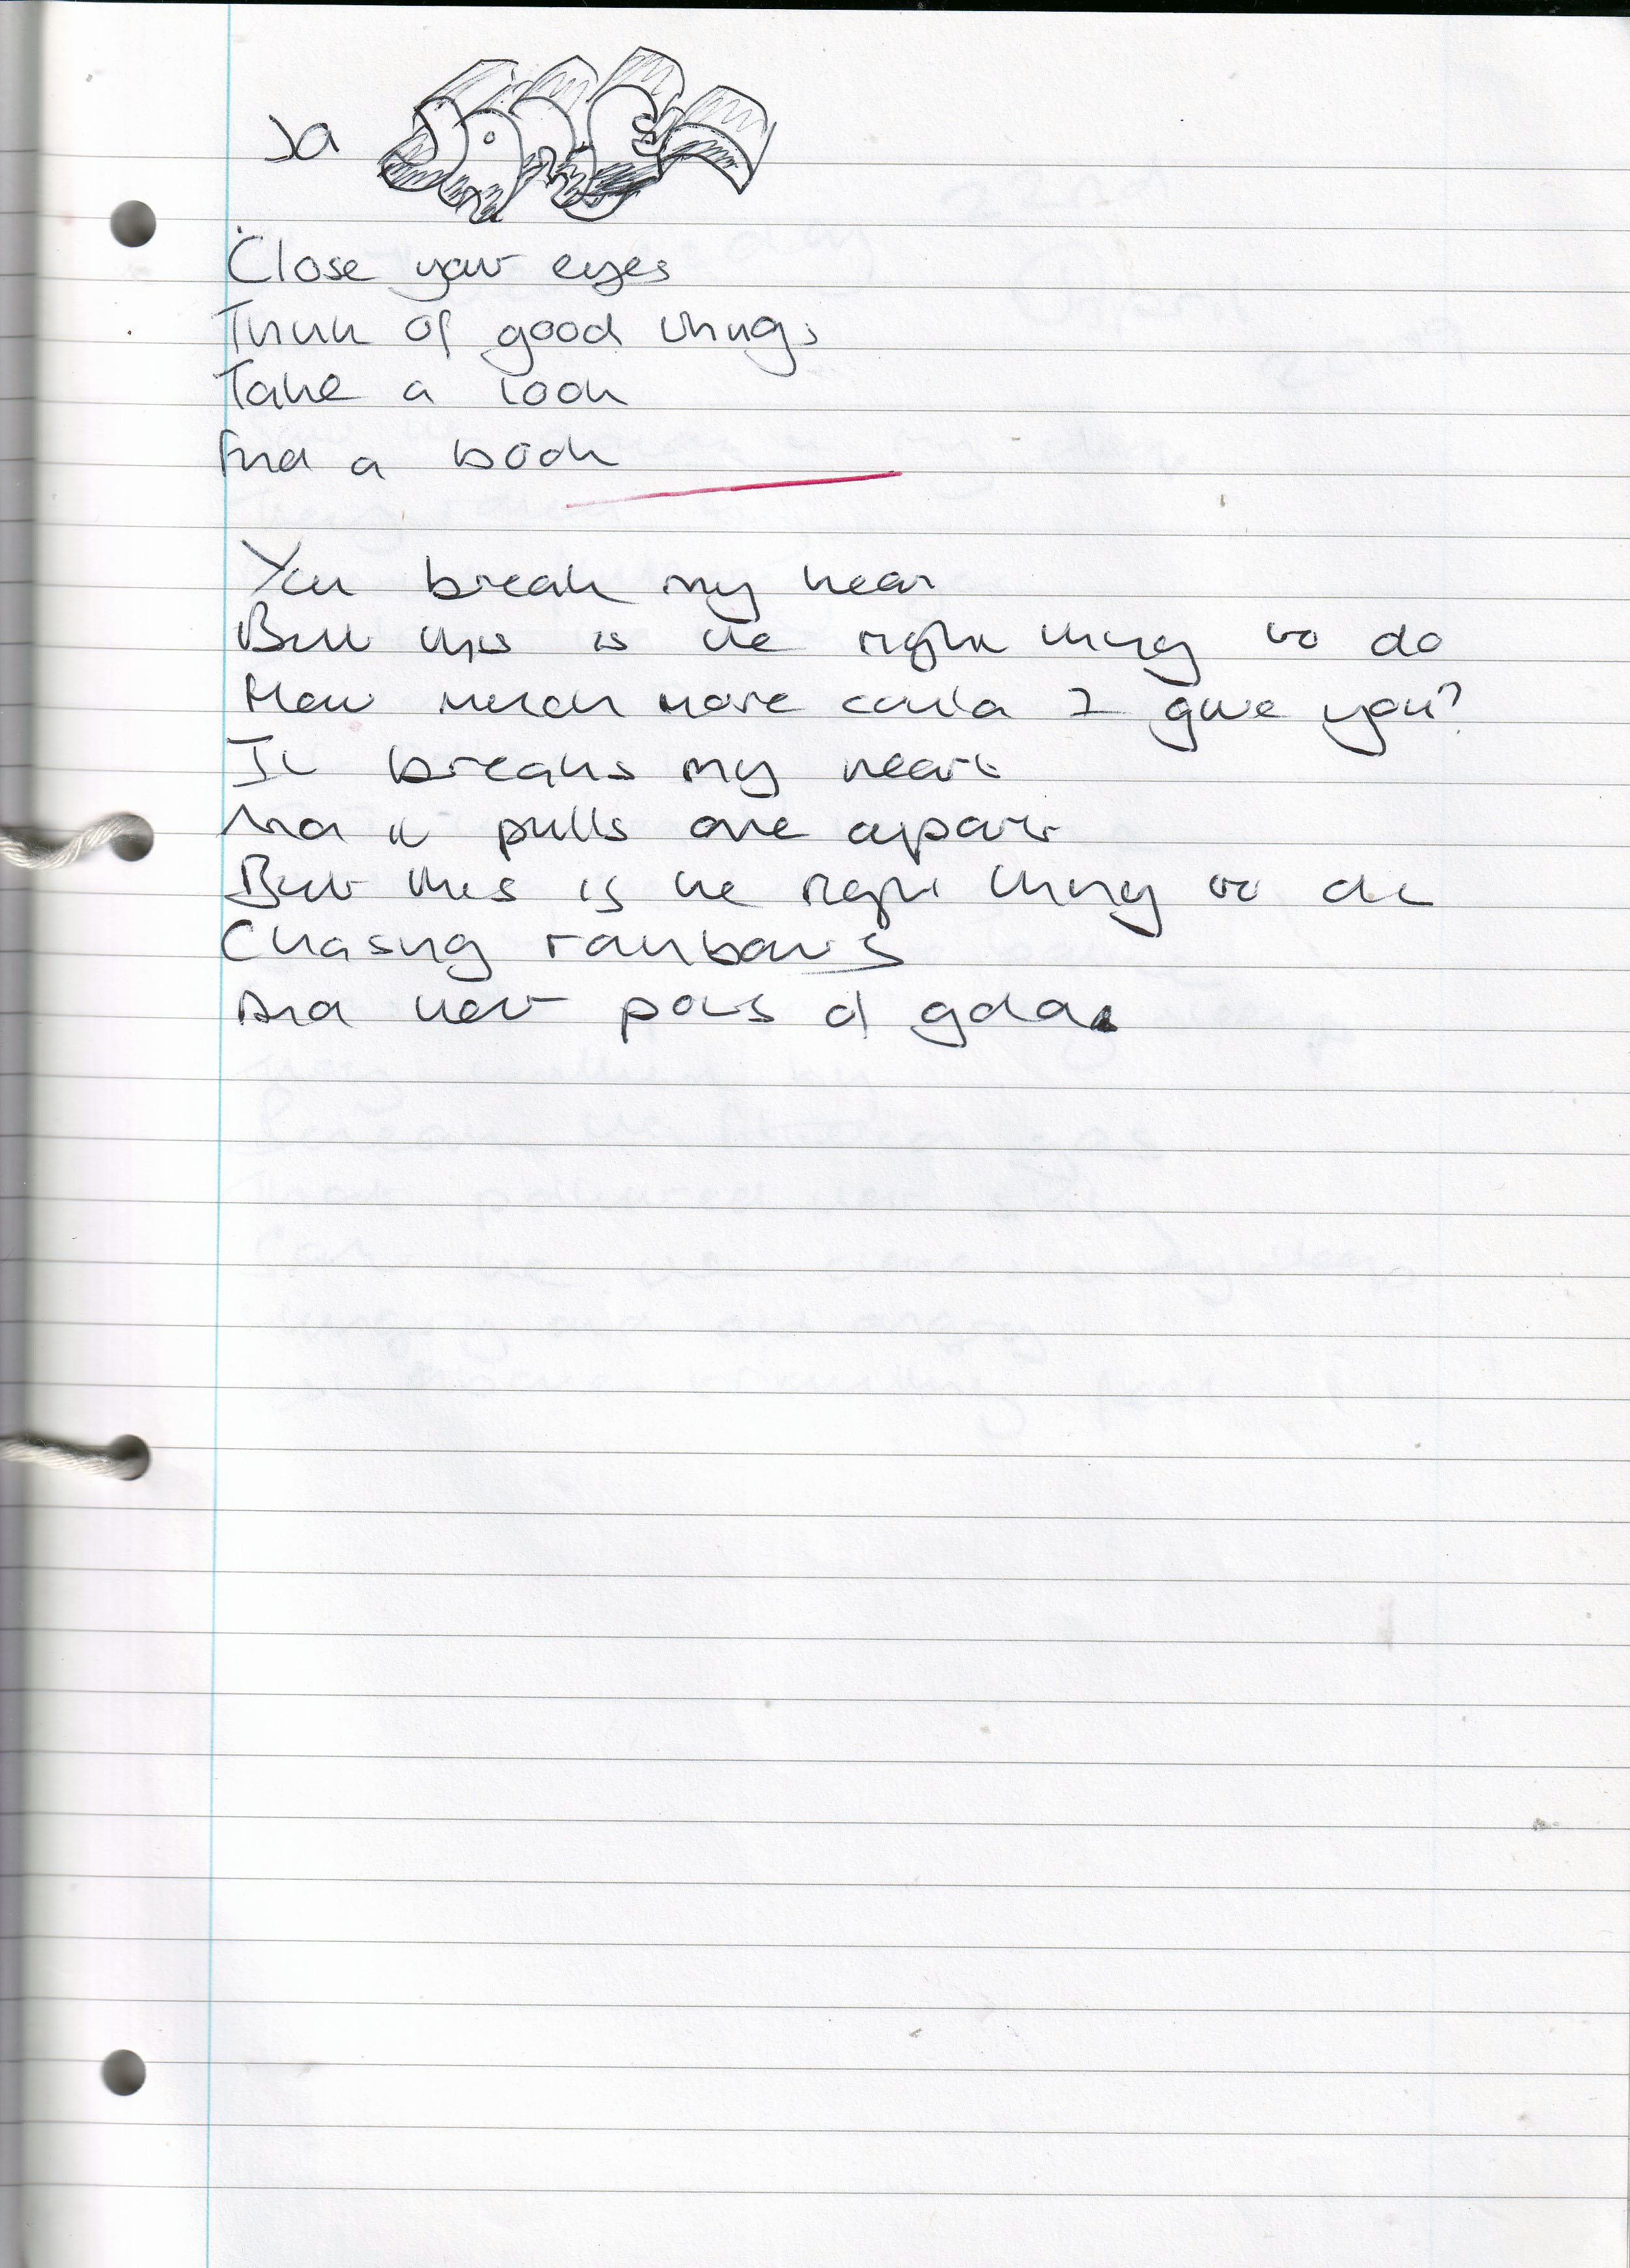 Ja
Close your eyes
Think of good things
Take a look
And a book
You break my hear
But this is the right thing to do
How much more could I give you?
It breaks my heart
And it pulls one apart
But this is the right thing to do
Chasing rainbows
And her pots of gold